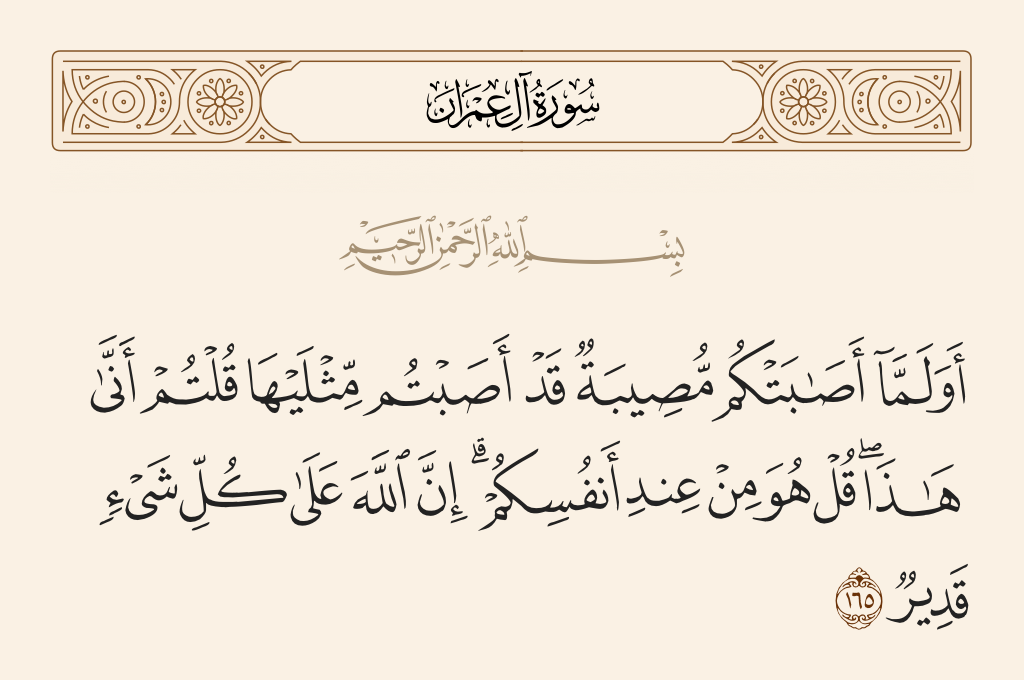 سُورَةُ آلِ عِمْرَانَ
بِسْمِ ٱللَّهِ ٱلرَّحْمَٰنِ ٱلرَّحِيمِ
أَوَلَمَّآ أَصَٰبَتْكُم مُّصِيبَةٌ قَدْ أَصَبْتُم مِّثْلَيْهَا قُلْتُمْ أَنَّىٰ
هَٰذَا ۖ قُلْ هُوَ مِنْ عِندِ أَنفُسِكُمْ ۗ إِنَّ ٱللَّهَ عَلَىٰ كُلِّ شَىْءٍ
قَدِيرٌ ١٦٥